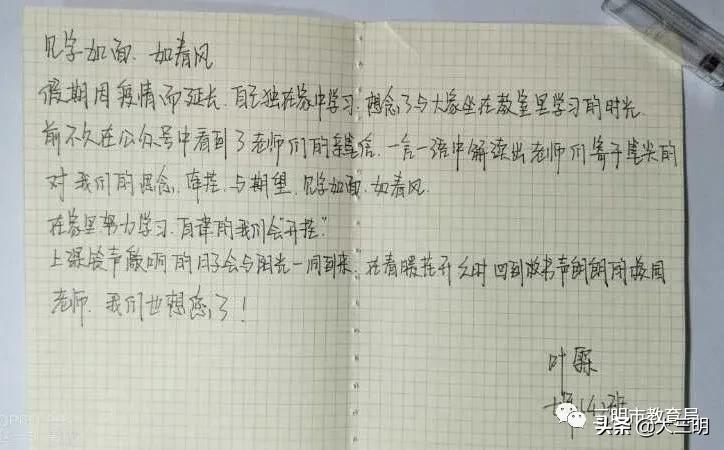 见字如面，如春风
假期因疫情而延长，自己独在家中学习，想念了与大家坐在教室里学习的时光，
前不久在公众号中看到了老师们的亲笔信，一言一语中解读出老师们寄于笔尖的
对我们的思念、牵挂、与期望，见字如面，如春风。
在家里努力学习，自律的我们会"开挂"
上课铃声敲响的日子会与阳光一同到来，在春暖花开之时回到放书声朗朗的校园
老师，我们也想您了！
叶霖
三明市教育局
头条 @大三明